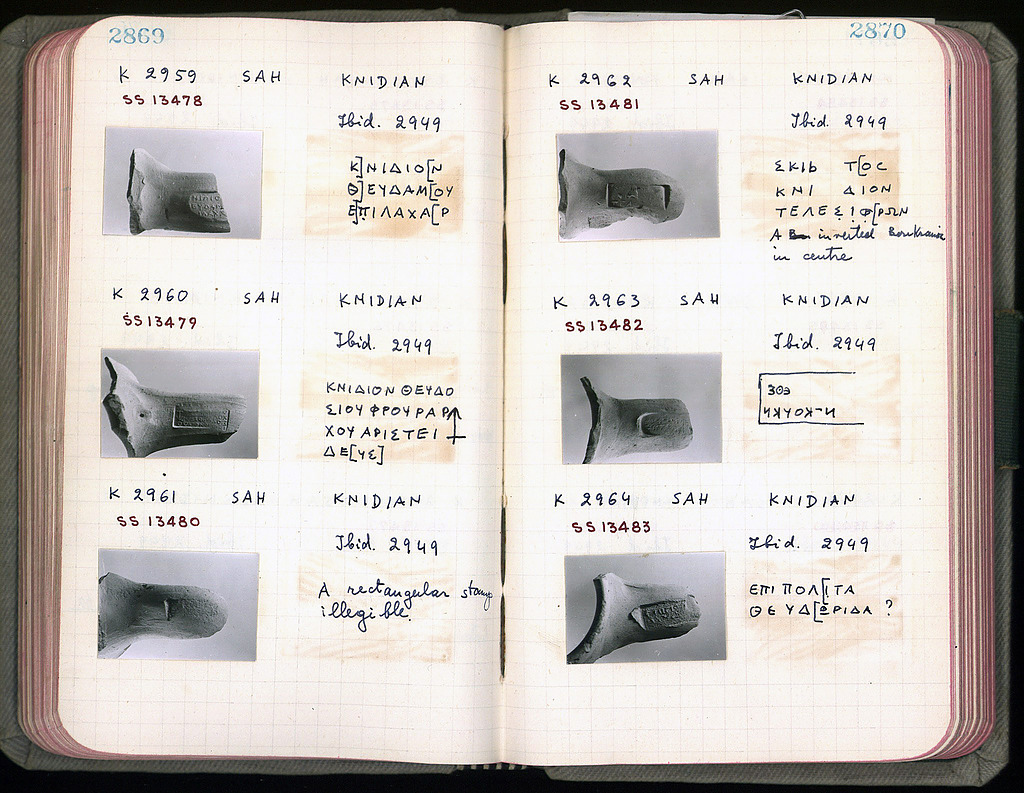 2869
K 2959 SAH KNIDIAN
SS 13478
Ibid. 2949
Κ]ΝΙΔΙΟ[Ν
Θ]ΕΥΔΑΜ[ΟΥ
Ε]ΠΙΛΑΧΑ[Ρ
K 2960 SAH KNIDIAN
SS 13479
Ibid. 2949
ΚΝΙΔΙΟΝ ΘΕΥΔΟ
ΣΙΟΥ ΦΡΟΥΡΑΡ
ΧΟΥ ΑΡΙΣΤΕΙ
ΔΕ[ΥΣ]
K 2961 SAH KNIDIAN
SS 13480
Ibid. 2949
A rectangular stamp
illegible.
2870
K 2962 SAH KNIDIAN
SS 13481
Ibid. 2949
ΣΚΙΡ Τ[ΟΣ
ΚΝΙ ΔΙΟΝ
ΤΕΛΕΣΙΦ[ΡΩΝ
A inverted Boukranion
in centre
K 2963 SAH KNIDIAN
SS 13482
Ibid. 2949
K 2964 SAH KNIDIAN
SS 13483
Ibid. 2949
ΕΠΙ ΠΟΛ[ΙΤΑ
ΘΕΥΔ[ΕΡΙΔΑ ?